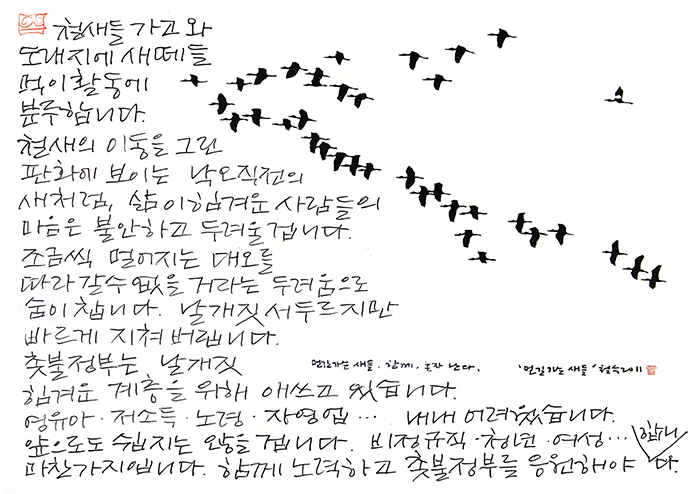 철새들 가고 와
도래지에 새떼들
먹이활동에
분주합니다.
철새의 이동을 그린
판화에 보이는 낙오직전의
새처럼, 삶이 힘겨운 사람들의
마음은 불안하고 두려울겁니다.
조금씩 멀어지는 대오를
따라 갈수 없을 거라는 두려움으로
숨이 찹니다. 날개짓 서두르지만
빠르게 지쳐 버립니다.
촛불정부는, 날개짓
힘겨운 계층을 위해 애쓰고 있습니다.
영유아·저소득·노령·자영업··· 내내 어려웠습니다.
앞으로도 쉽지는 않을겁니다. 비정규직·청년·여성···
마찬가지입니다. 함께 노력하고 촛불정부를 응원해야 합니다.
먼길가는 새들. 함께, 혼자 난다.
'먼길 가는 새들' 철수 2011